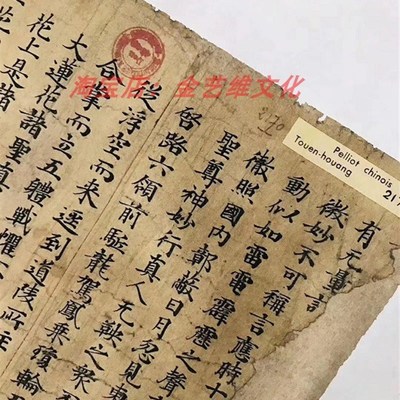 有无量音
微妙不可稱言應時十
動似如雷電霹靂之聲
徹照國内鄣蔽日月忽見
聖尊神妙行真人无鞅之衆
啓路六領前駈龍駕鳳乘瓊輪
從浮空而来逕到道陵所
合掌而立五體戰懼
大蓮花諸聖真
花上是諸
Pelliot chinois
Touen-houang 217
淘宝店：金艺维文化